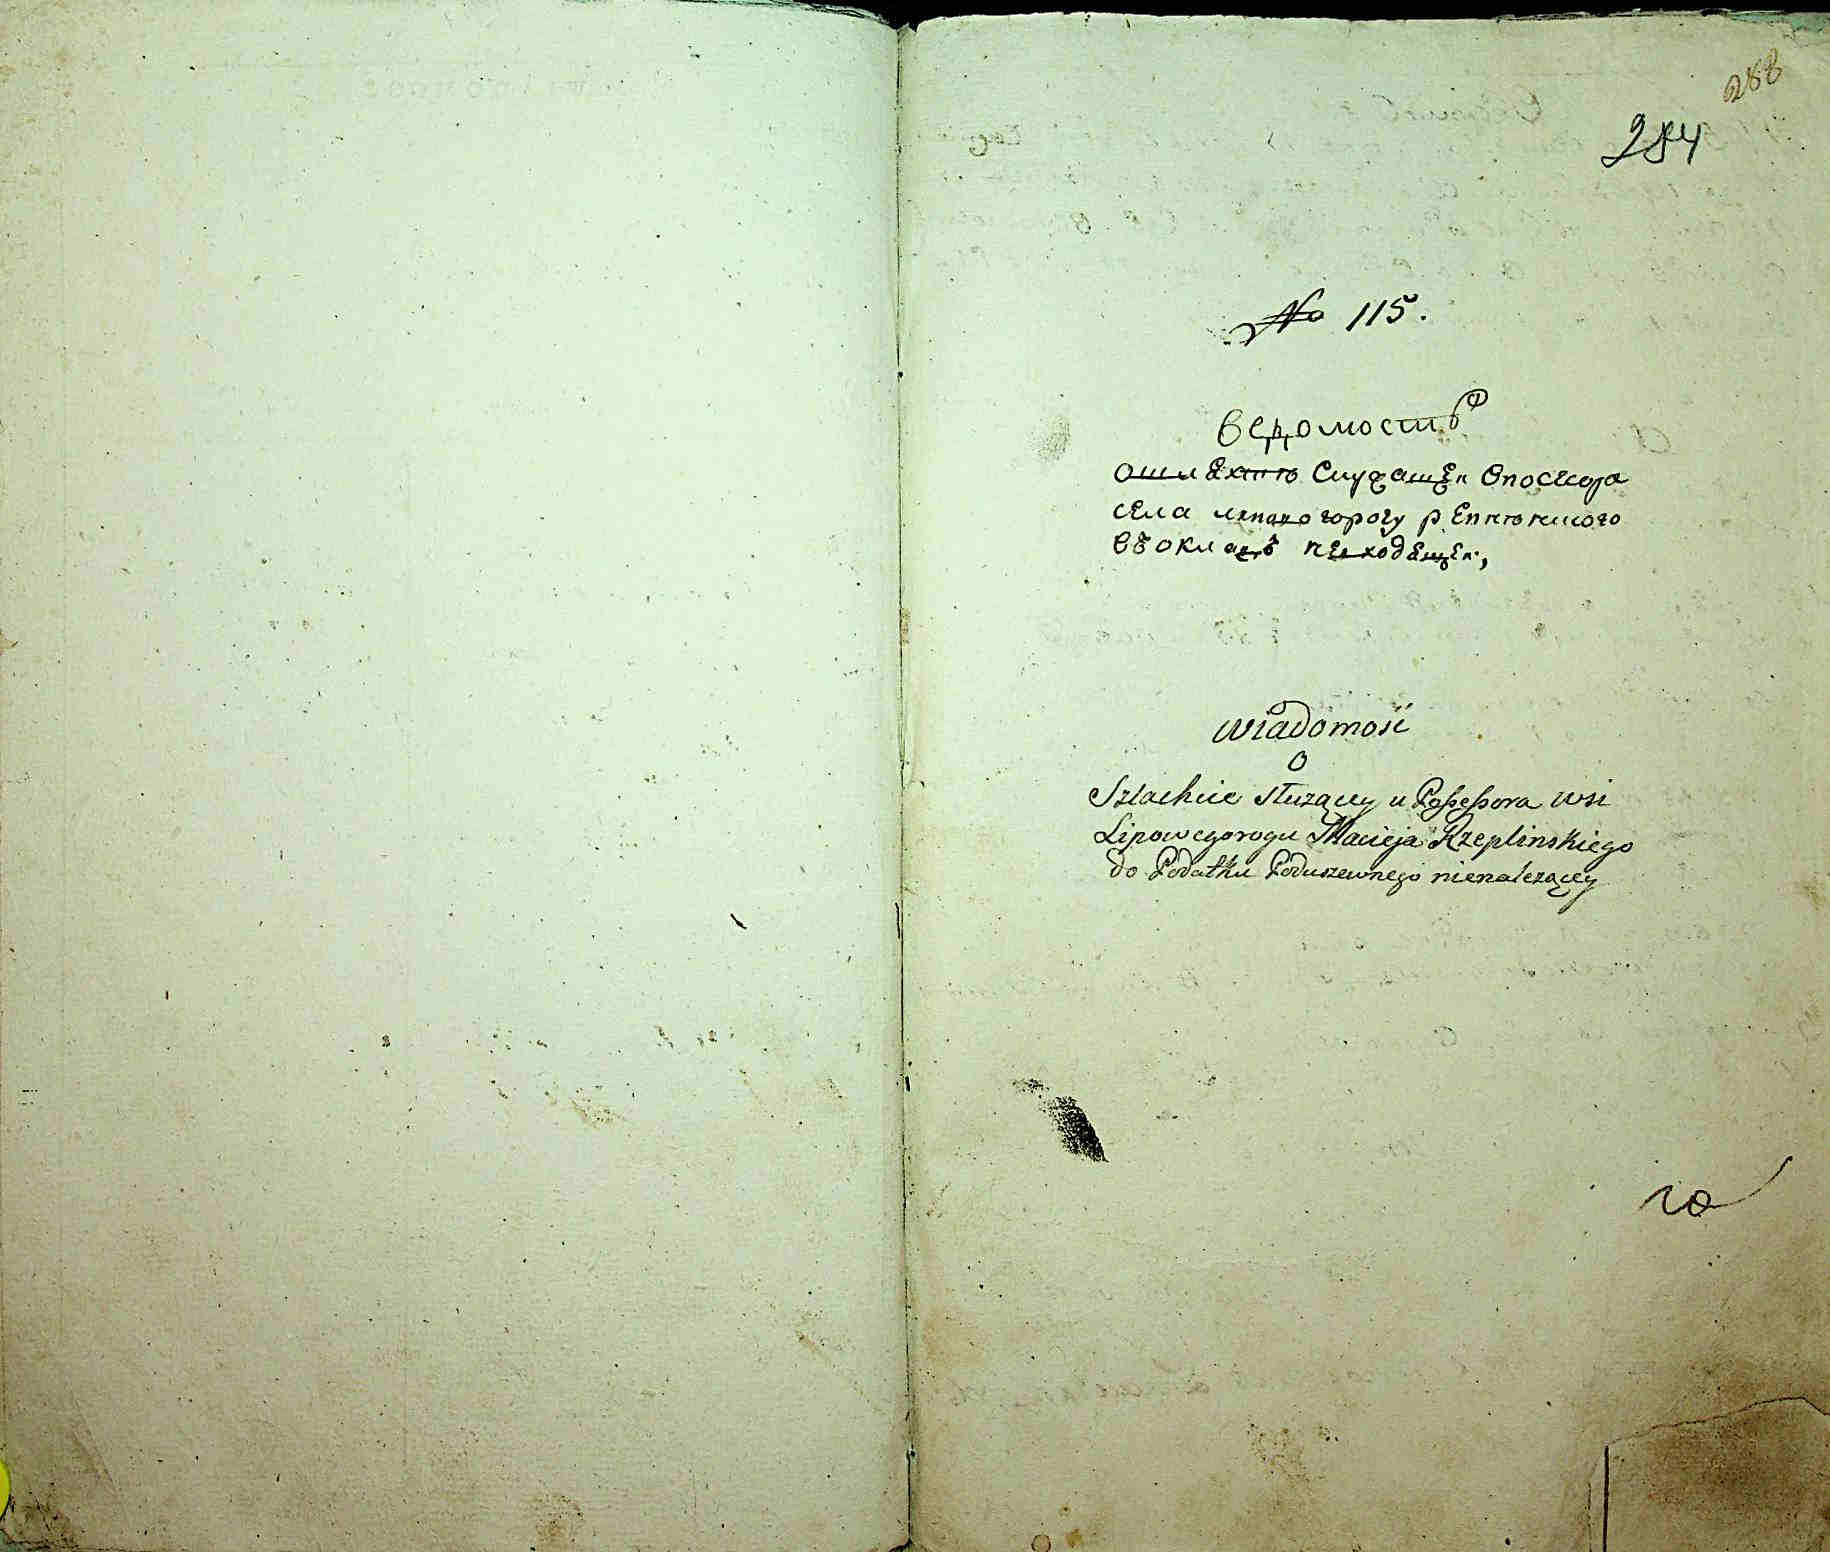 288
284
No 115.
ведомость
ошляхтю Служащей Впосесора
села липовогорогу репинского
въокладъ невходящей,
wiadomość
o
Szlachcie służący u Possessora wsi
Lipowegorogu Macieja Rzeplinskiego
do Podatku Poduszewnego nienależący